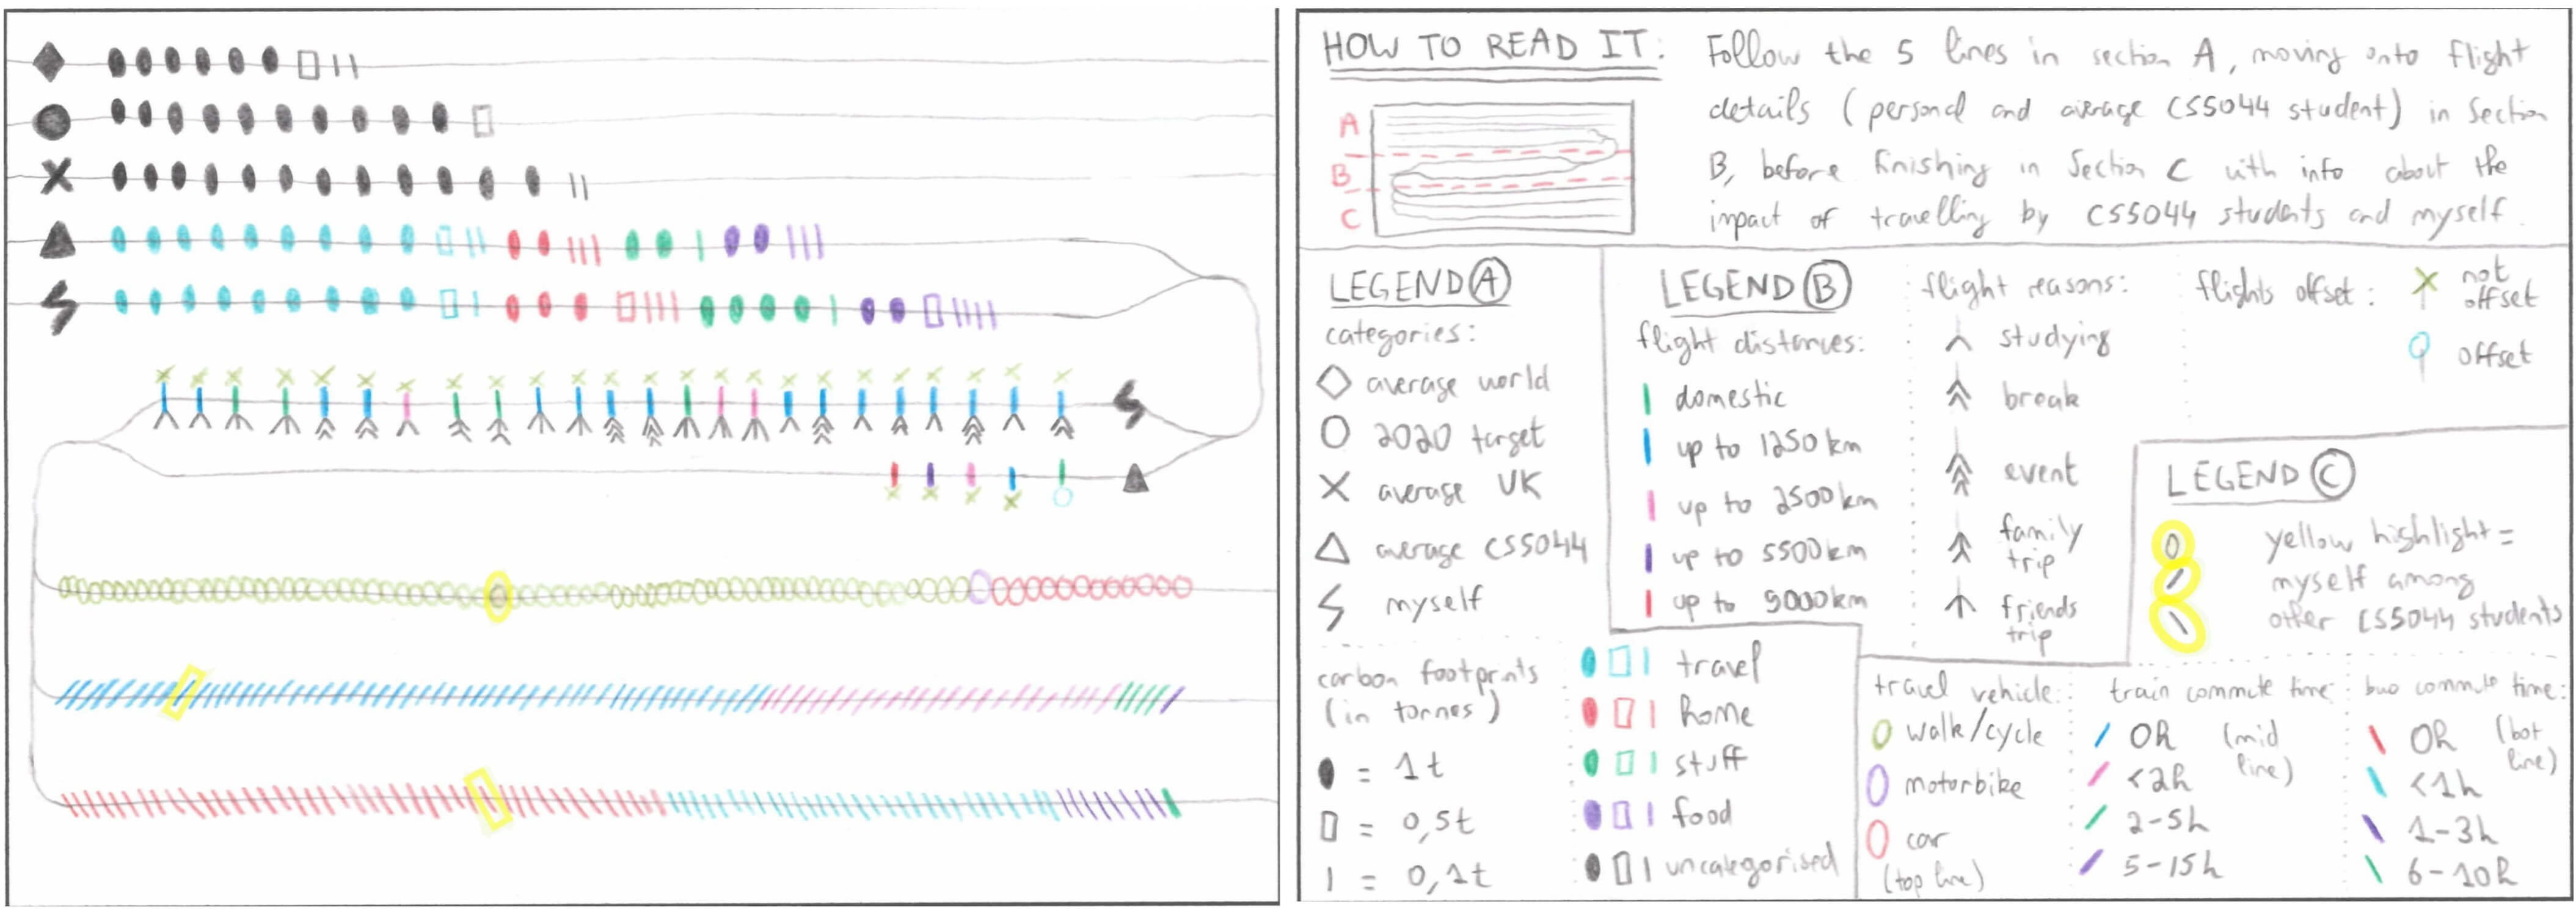 HOW TO READ IT:
Follow the 5 lines in section A, moving onto flight
details (personal and average CS5044 student) in Section
B, before finishing in Section C with info about the
impact of travelling by CS5044 students and myself.
A
B
C
LEGEND A
categories:
average world
2020 target
average UK
average CS5044
myself
carbon footprints
(in tonnes)
= 1t
= 0,5t
= 0,1t
travel
home
stuff
food
uncategorised
LEGEND B
flight distances:
domestic
up to 1250 km
up to 2500 km
up to 5500 km
up to 9000 km
flight reasons:
studying
break
event
family
trip
friends
trip
flights offset:
not
offset
offset
LEGEND C
yellow highlight =
myself among
other CS5044 students
travel vehicle:
walk/cycle
motorbike
car
(top line)
train commute time:
0h (mid
line)
<2h
2-5h
5-15h
bus commute time:
0h (bot
line)
<1h
1-3h
6-10h